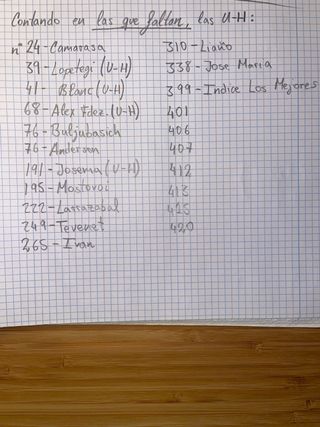 Contando en las que faltan, las U-H:
nº 24 - Camarasa
39 - Lopetegi (U-H)
41 - Blanc (U-H)
68 - Alex Fdez. (U-H)
76 - Buljubasich
76 - Andersen
191 - Josema (U-H)
195 - Mostovoi
222 - Larrazabal
249 - Tevenet
265 - Ivan
310 - Liaño
338 - Jose Maria
399 - Indice Los Mejores
401
406
407
412
413
420